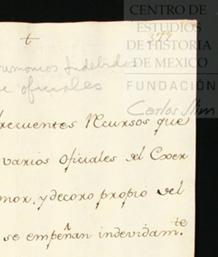 CENTRO DE
ESTUDIOS
DE HISTORIA
DE MEXICO
FUNDACIÓN
Carlos Slim
oficiales
frecuentes Recursos que
varios Oficiales del Exer
y decoro propio del
se empeñan indevidam.te